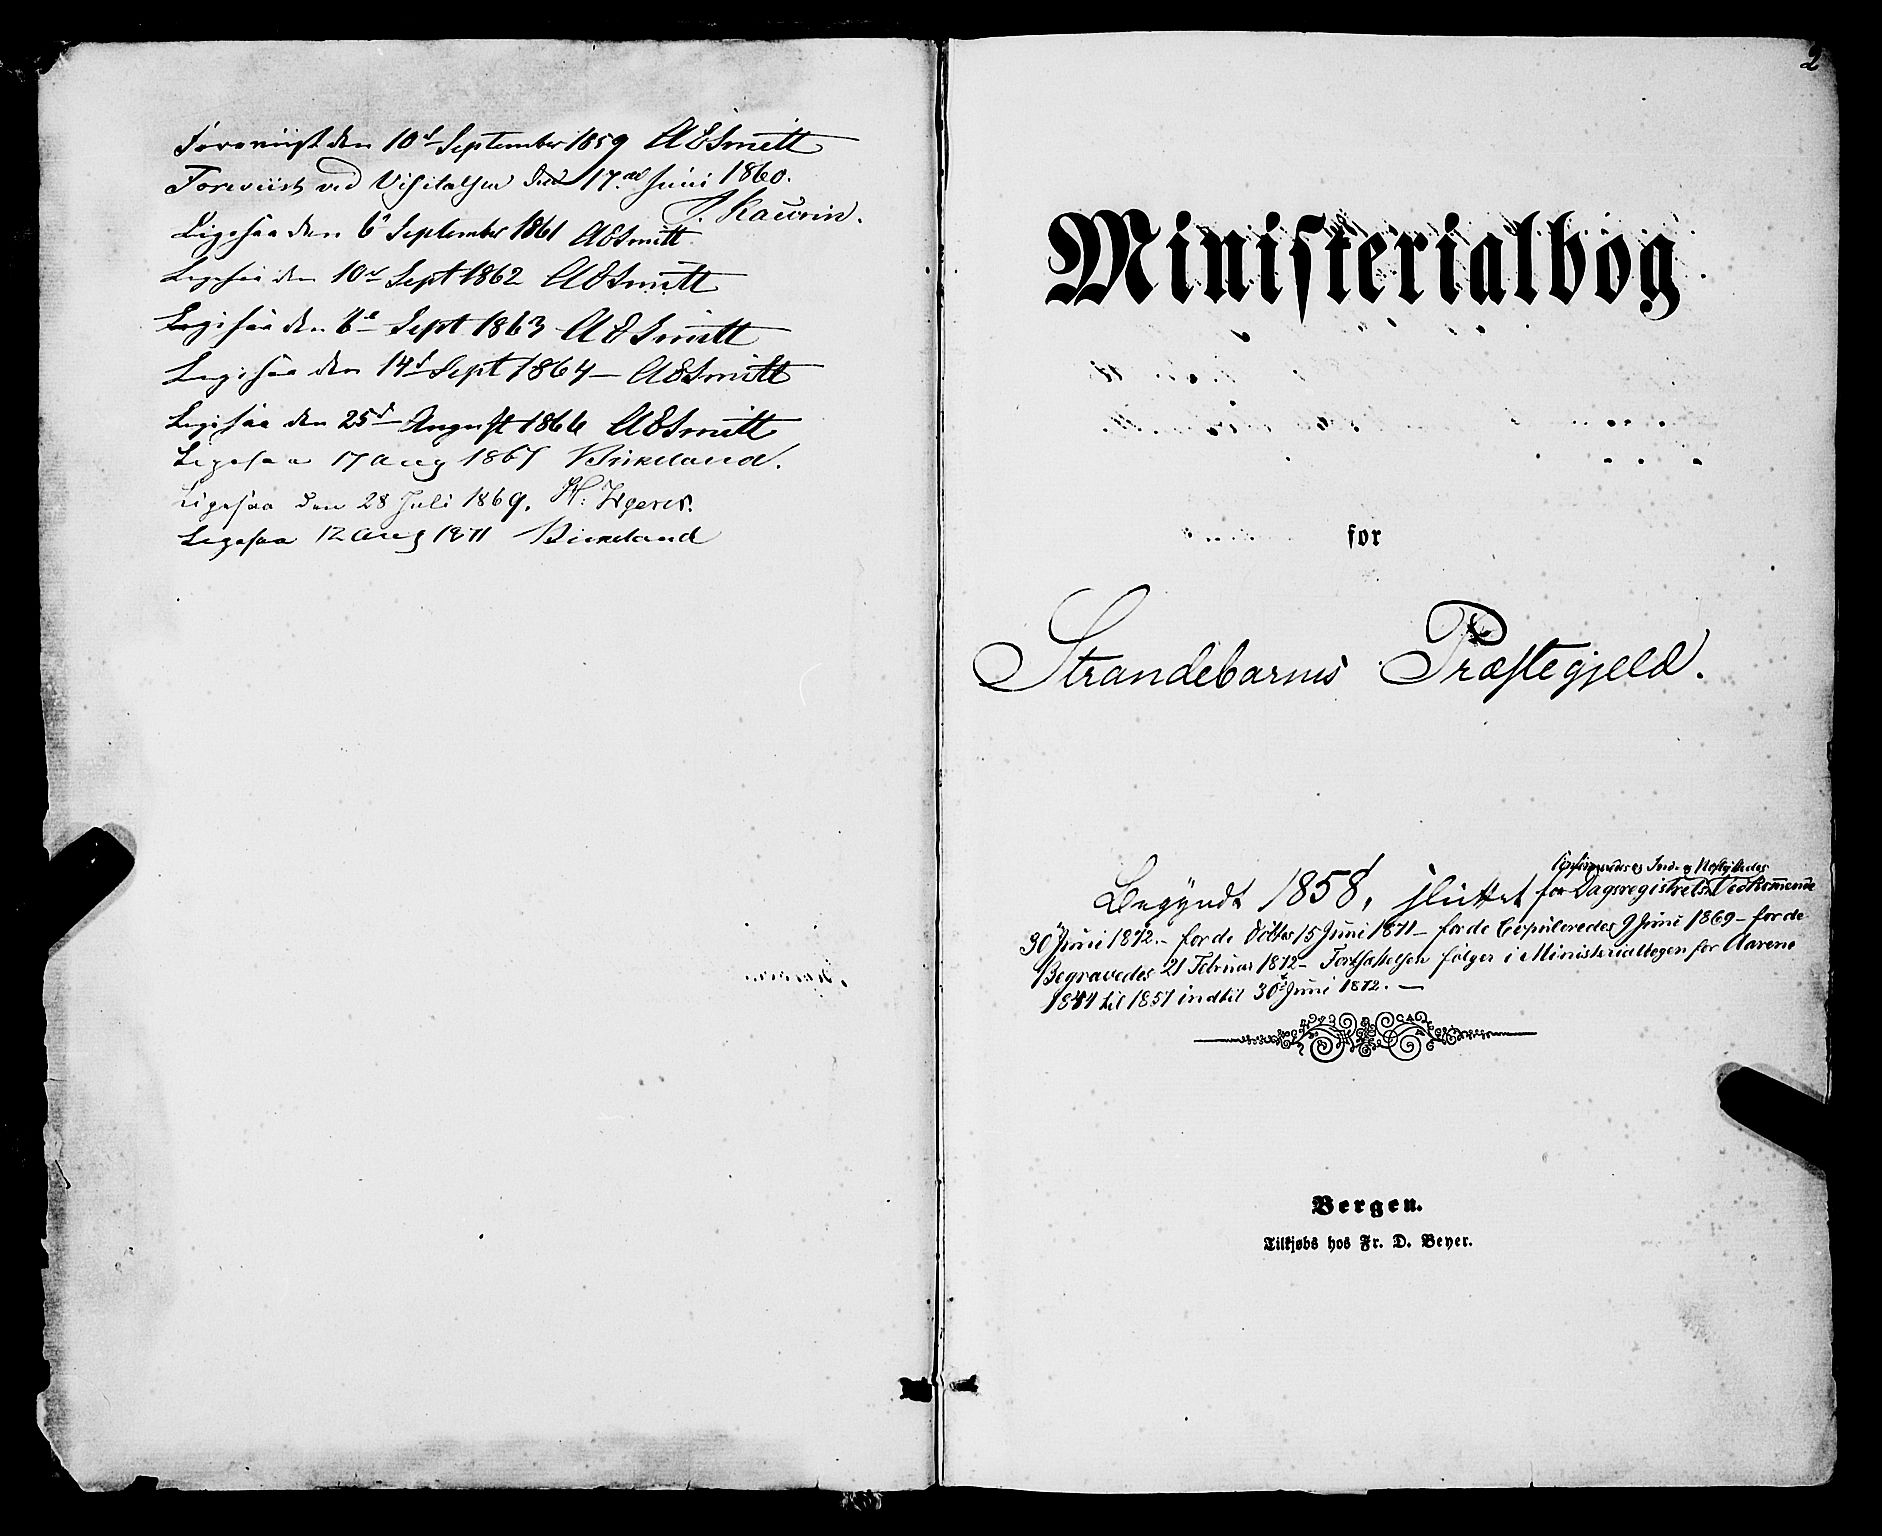 Foreviist den 10d September 1859 AESmitt
Foreviist ved Visitatsen den 17de Juni 1860.
J. Kaurin.
Ligesaa den 6t September 1861 AESmitt
Ligesaa den 10d Sept 1862 AESmitt
Ligesaa den 8d Sept 1863 AESmitt
Ligesaa den 14d Sept 1864 – AESmitt
Ligesaa den 25d August 1866 AESmitt
Ligesaa 17 Aug 1867 Birkeland.
Ligesaa den 28 Juli 1869. H.
Ligesaa 12 Aug 1871 Birkeland
2
Ministerialbog
for
Strandebarms Præstegjeld.
Confirmeredes og Ind- og
Begyndt 1858, sluttet for Dagsregistrets Vedkommende
30 Juni 1872. – for de Døbte 15 Juni 1871 – for de Copuleredes 9 Juni 1869 – for de
Begravedes 21 Februar 1872 – Fortsættelsen følger i Ministerialbogen for Aarene
1844 til 1857 indtil 30t Juni 1872. –
Bergen.
Tilkjøbs hos Fr. D. Beyer.